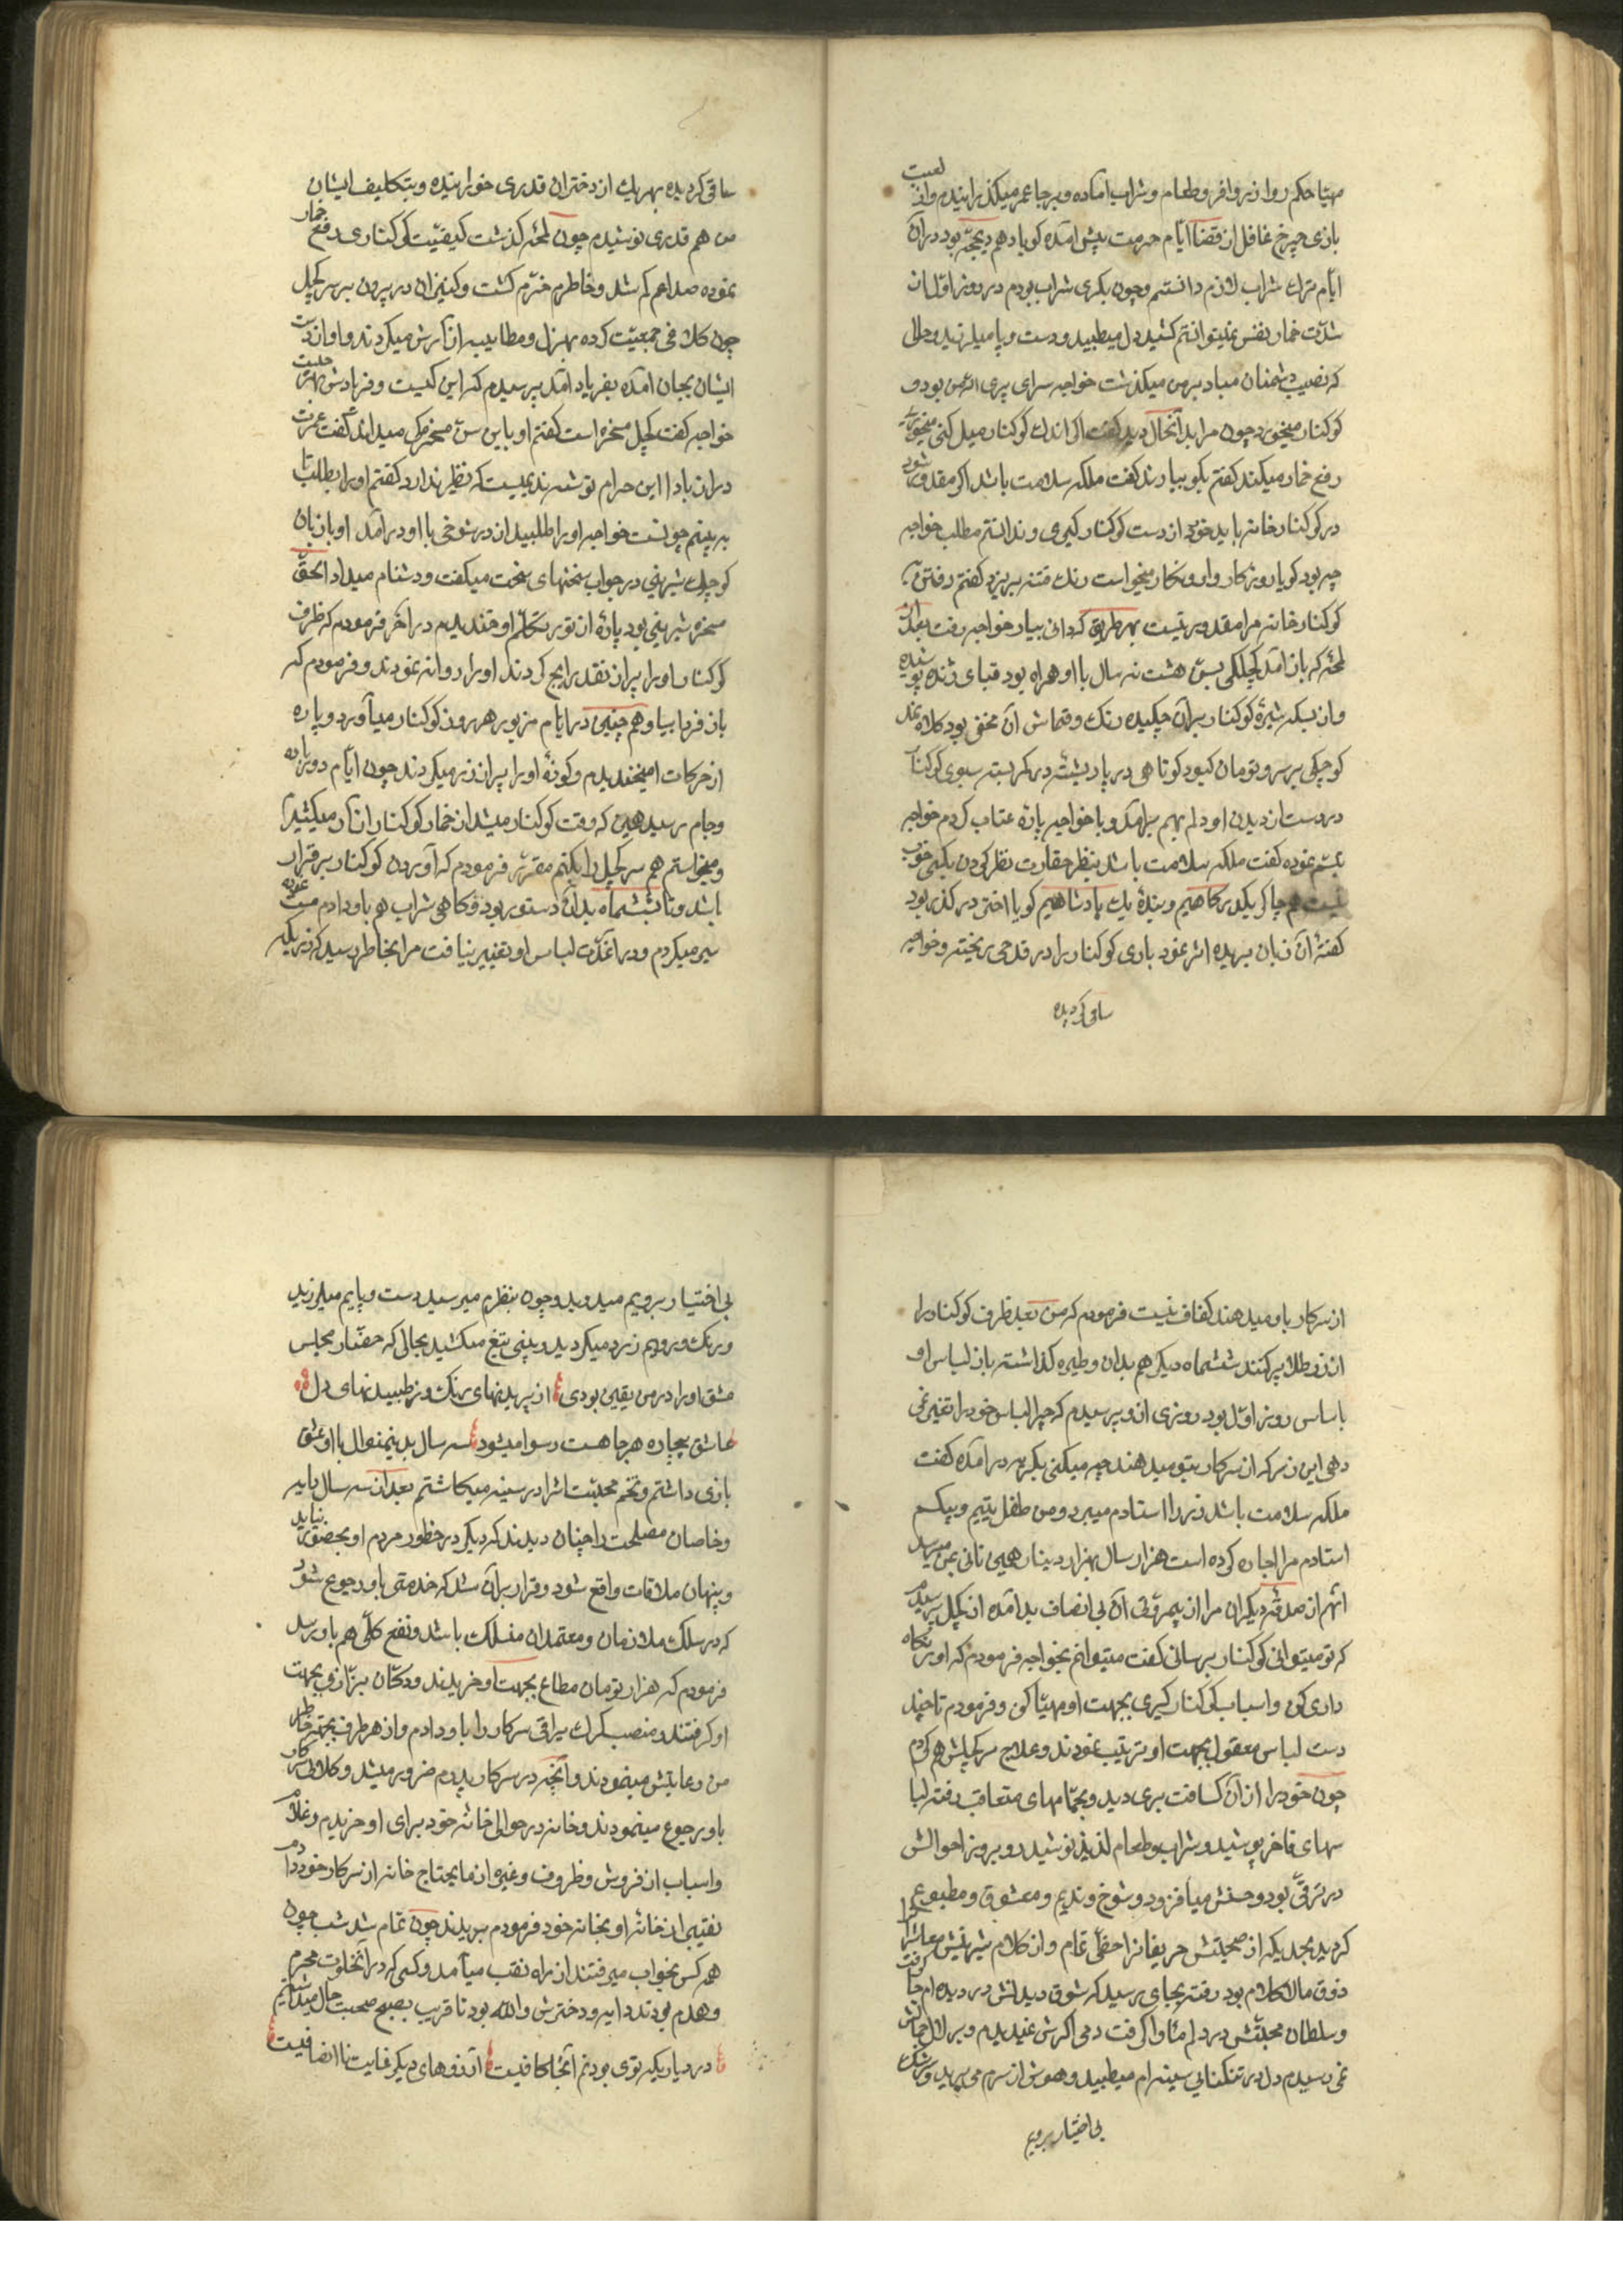 مهیا حکم روا زر وافر و طعام و شراب آماده و برجا عمر میکذرانیدم و از لعبت
بازی چرخ غافل از قضا ایام حرمت پیش آمده کویا دهم ذیحجه بود در آن
ایام ترک شراب لازم دانستم و چون بکری شراب بودم در روز اول از
شدت خمار نفس نمیتوانستم کشید دل میطپید و دست و پا میلرزید و حالی
که نصیب دشمنان مباد بر من میکذشت خواجه سرای پیری از من بود و
کوکنار میخورد چون مرا بدانحال دید کفت اکر اندک کوکنار میل کنی
رفع خمار میکند کفتم بکو بیارند کفت ملکه سلامت باشد اکر مقدور شود
در کوکنار خانه باید خورد از دست کوکنار کیری و ندانستم مطلب خواجه
چه بود کویا روزکار واروی کار میخواست رنک فتنه بریزد کفتم رفتن به
کوکنار خانه مرا مقدور نیست بهر طریق که دانی بیار خواجه رفت بعد از
لمحه که باز آمد کچلکی بسن هشت نه سال با او همراه بود قبای ژنده پوشیده
و از بسکه شیرهٔ کوکنار بر آن چکیده رنک و قماش آن مخفی بود کلاه نمد
کوچکی بر سر و تومان کبود کوتاهی در پا و پشته در کمر بسته سبوی کوکنار
در دست از دیدن او دلم بهم برآمد و با خواجه پاره عتاب کردم خواجه
تبسم نموده کفت ملکه سلامت باشد بنظر حقارت نظر کردن بکسی خوب
نیست هم چاکر یکدرکاهیم و بندهٔ یک پادشاهیم کویا اختر در کذر بود
کفتهٔ آن زبان بریده اثر نمود باری کوکنار را در قدحی ریخته و خواجه
ساقی کردیده
ساقی کردیده بهر یک از دختران قدری خورانیده و بتکلیف ایشان
من هم قدری نوشیدم چون لمحهٔ کذشت کیفیت کوکنار ی دفع خمار
نموده صداعم کم شد و خاطرم خرم کشت و کنیزان در بیرون بر سر کچل
چون کلافی جمعیت کرده بهزل و مطایبه از آرش میکردند و او از دست
ایشان بجان آمده بفریاد آمد پرسیدم که این کیست و فریادش بهر چیست
خواجه کفت کچل مسخره است کفتم او باین سن مسخرکی میداند کفت عمرت
دراز باد این حرام توشه ندیمیست که نظیر ندارد کفتم او را بطلب تا
به بینم چونست خواجه او را طلبید از در شوخی با او درآمد او با زبان
کوچک شیرینی در جواب سخنهای سخت میکفت و دشنام میداد الحق
مسخرهٔ شیرینی بود پارهٔ از تو بر تکلم او خندیدم در آخر فرمودم که ظرف
کوکنار او را پر از نقد رایج کردند او را روانه نمودند و فرمودم که
باز فردا بیا و هم چنین در ایام مزبور هر روز کوکنار میآورد و پاره
از حرکات او میخندیدم و کوزهٔ او را پر از زر میکردند چون ایام دور باده
و جام رسید همین که وقت کوکنار میشد از خمار کوکنار آزار میکشیدم
و میخواستم هم سر کچل را بکنم مقرر فرمودم که آوردن کوکنار برقرار
باشد و تا ششماه بدان دستور بود و کاهی شراب هم باو دادم
سیر میکردم و در آنمدت لباس او تغییر نیافت مرا بخاطر رسید که زریکه
از سرکار باو میدهند کفاف نیست فرمودم که من بعد ظرف کوکنار را
از زر طلا پر کنند ششماه دیکر هم بدان وطیره کذاشته باز لباس او
باساس روز اول بود روزی از و پرسیدم که چرا لباس خود را تغیر نمی
دهی این زر که از سرکار بتو میدهند چه میکنی بکریه در آمده کفت
ملکه سلامت باشد زر را استادم میبرد و من طفل یتیم و بیکسم
استادم مرا اجاره کرده است هزار سال بهزار دینار همین نانی بمن میرسد
آنهم از صدقه دیکران مرا از بیمروتی آن بی انصاف بد آمده از کچل پرسیدم
که تو میتوانی کوکنار برسانی کفت میتوانم بخواجه فرمودم که او را نکاه
داری کن و اسباب کوکنار کیری بجهت او مهیا کن و فرمودم تا چند
دست لباس معقول بجهت او ترتیب نمودند و علاج سر کچلش هم کردم
چون خود را از آن کسافت بری دید و بحمامهای متعاقب رفته لبا
سهای فاخر پوشید و شراب و طعام لذیذ نوشید روبروز احوالش
در ترقی بود و حسنش میافزود و شوخ و ندیم و معشوق و مطبوع
کردید بحدیکه از صحبتش حریفانرا حظی تمام و از کلام شیرینش معاشرانرا
ذوق مالاکلام بود رفته رفته بجای رسید که شوق دیدنش در دیده ام جا کرفت
و سلطان محبتش در دلم مأوا کرفت دمی اکرش نمیدیدم و بزلال جمالش
نمی رسیدم دل در تنکنای سینه ام میطپید و هوش از سرم می پرید و سرشک
بی اختیار برویم
بی اختیار برویم میدوید و چون بنظرم میرسید دست و پایم میلرزید
و رنک و رویم زرد میکردید و بینی تیغ میکشید بحالی که حضار مجلس
عشق او را در من یقین بودی از پریدنهای رنک و زطپیدنهای دل
عاشق بیچاره هر جا هست رسوا میشود سه سال بدینمنوال با او عشق
بازی داشتم و تخم محبت اشرا در سینه میکاشتم بعد از سه سال دایه
و خاصان مصلحت را چنان دیدند که دیکر در حظور مردم او بحضور نیاید
و پنهان ملاقات واقع شود و قرار بر آن شد که خدمتی باو رجوع شود
که در سلک ملازمان و معتمدان منسلک باشد و نفع کلی هم باو برسد
فرمودم که هزار تومان مطاع بجهت او خریدند و دکان بزازی بجهت
او کرفتند و منصب کرک یراقی سرکار را باو دادم و از هر طرف بجهة خاطر
من رعایتش مینمودند و آنچه در سرکار پدرم ضرور میشد وکلای سرکار
باو رجوع مینمودند و خانه در حوالی خانه خود برای او خریدم و غلام
و اسباب از فروش و ظروف و غیره از ما یحتاج خانه از سرکار خود دادم
نقبی از خانه او بخانه خود فرمودم بریدند چون تمام شد شب چون
همه کس بخواب میرفتند از راه نقب میآمد و کسی که در آنخلوت محرم
و همدم بودند دایه و دخترش و الله بود تا قریب بصبح صحبت حال میداشتیم
در دیاریکه توی بودنم آنجا کافیست آرزوهای دیکر غایت ناانصافیست